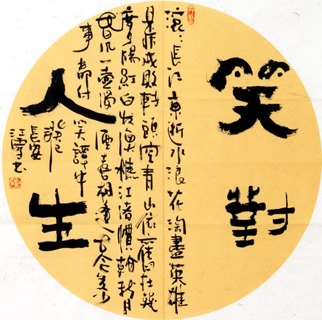 笑對
滚滚長江東逝水浪花淘盡英雄
是非成敗轉頭空青山依舊在幾
度夕陽紅白发漁樵江渚慣看秋月
春風一壺濁酒喜相逢古今多少
事都付笑談中
人生
長安